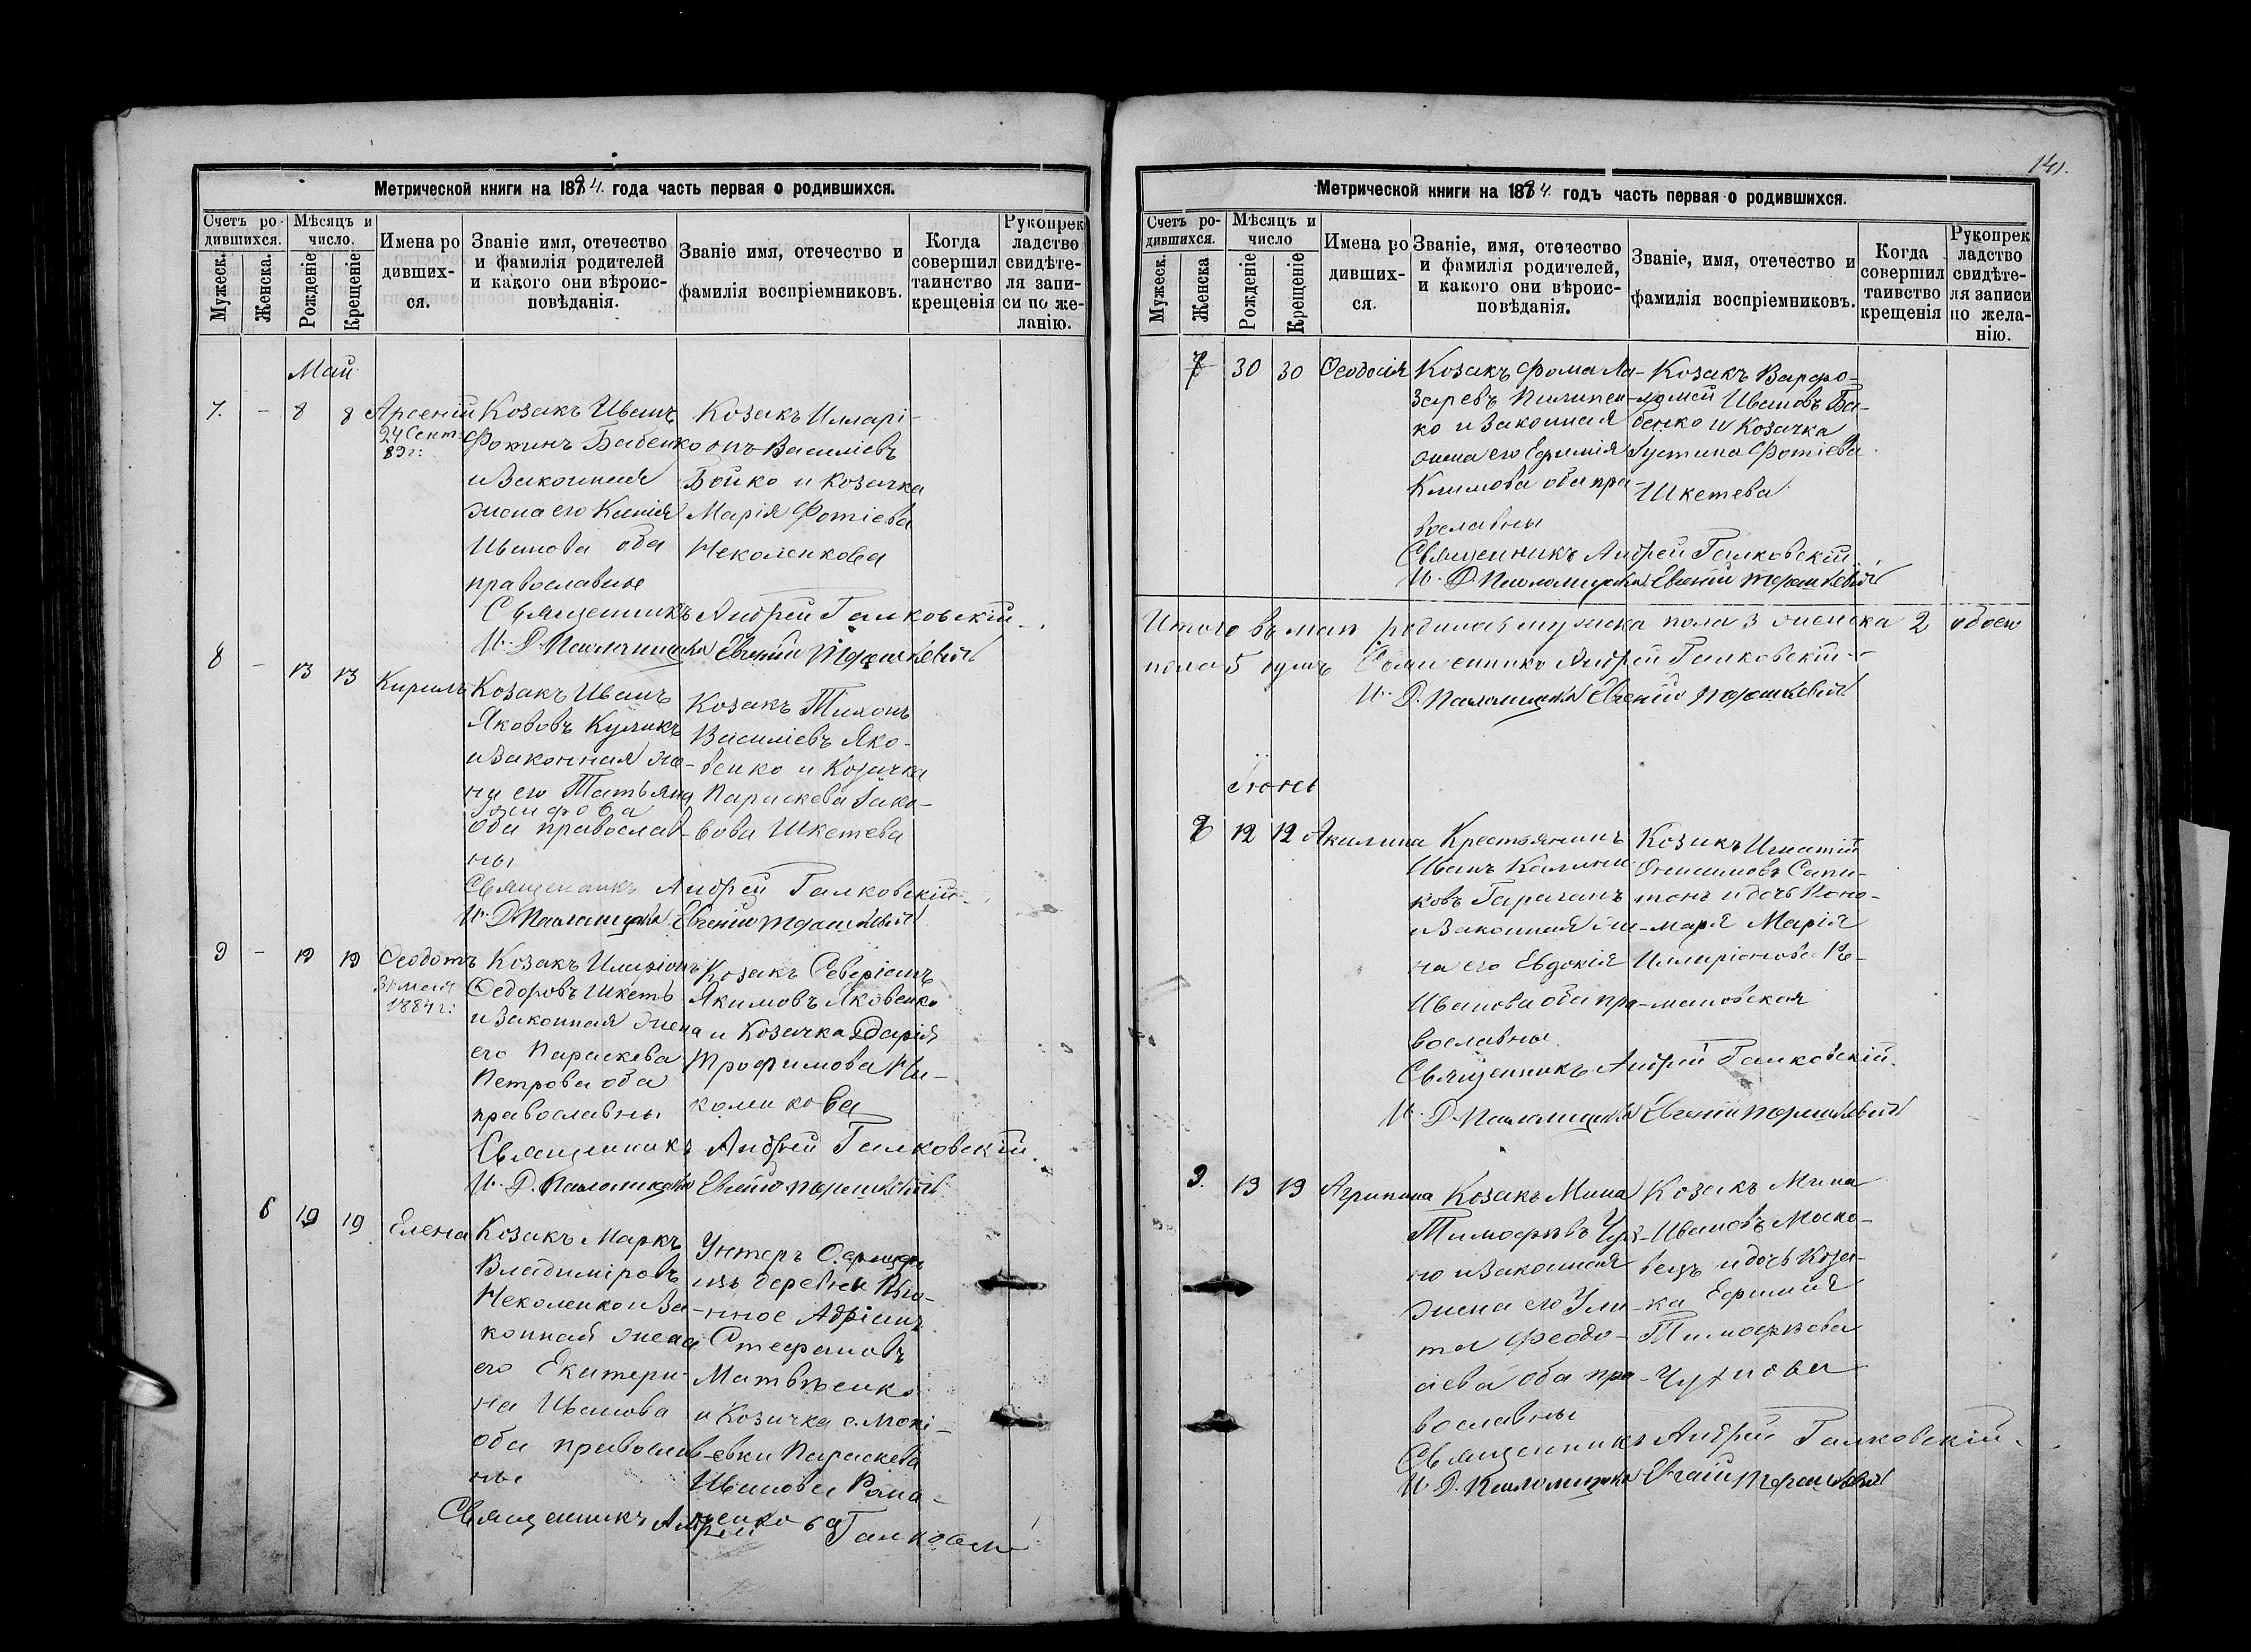 Метрической книги на 1884. года часть первая о родившихся.
Счетъ ро-
дившихся.
Мужеск.
Женска.
Мѣсяцъ и
число.
Рожденіе
Крещеніе
Имена ро
дивших-
ся.
Званіе имя, отечество
и фамилія родителей
и какого они вѣроис-
повѣданія.
Званіе имя, отечество и
фамилія воспріемниковъ.
Когда
совершил
таинство
крещенія
Рукопрек
ладство
свидѣте-
ля запи-
си по же-
ланію.
Май
7. - 8 8 Арсеній
24 Сент.
89 г:
Козакъ Иванъ
Фотинъ Бабенко
и Законная
жена его Ксенія
Иванова оба
православные
Козакъ Иларі-
онъ Василіевъ
Бойко и Козачка
Марія Фотіева
Неколенкова
Священникъ Андрей Галковскій.
И. Д. Псаломщика Евгеній
8 - 13 13 Кирилъ
Козакъ Иванъ
Яковъ Куликъ
и Законная же-
на его Татьяна
оба православ-
ны
Козакъ Тихонъ
Василіевъ Яко-
венко и Козачка
Параскева Іако-
вова Шкетева
Священникъ Андрей Галковскій.
И. Д. Псаломщика Евгеній
9 - 19 19 Феодотъ
31 мая
1884 г:
Козакъ Иларіонъ
Федоровъ Шкеть
и Законная жена
его Параскева
Петрова оба
православны
Козакъ Северіанъ
Якимовъ Яковенко
и Козачка Дарія
Трофимова Не-
коленкова
Священникъ Андрей Галковскій.
И. Д. Псаломщика Евгеній
6 19 19 Елена
Козакъ Маркъ
Владиміровъ
Неколенко и За-
конная жена
его Екатери-
на Иванова
оба православ-
ны
Унтеръ Офицеръ
изъ деревни
Адріанъ
Стефановъ
Матвѣенко
и Козачка с. Мокі-
евки Параскева
Иванова Рома-
ненкова
Священникъ Андрей Галковскій
141.
Метрической книги на 1884. годъ часть первая о родившихся.
Счетъ ро-
дившихся.
Мужеск.
Женска
Мѣсяцъ и
число
Рожденіе
Крещеніе
Имена ро
дивших-
ся.
Званіе, имя, отечество
и фамилія родителей,
и какого они вѣроис-
повѣданія.
Званіе, имя, отечество и
фамилія воспріемниковъ.
Когда
совершил
таивство
крещенія
Рукопрек
ладство
свидѣте-
ля записи
по жела-
нію.
7 30 30 Феодосія
Козакъ Фома Ла-
заревъ Пилипен-
ко и Законная
жена его Ефимія
Климова оба пра-
вославны
Козакъ Варфо-
ломей Ивановъ Ба-
бенко и Козачка
Іустина Фотіева
Шкетева
Священникъ Андрей Галковскій
И. Д. Псаломщика Евгеній
Итого въ маѣ родилось мужеска пола 3 женска 2 обоего
пола 5 душъ Священникъ Андрей Галковскій
И. Д. Псаломщика Евгеній
Іюнь
8 12 12 Акилина
Крестьянинъ
Иванъ Калини-
ковъ
и Законная же-
на его Евдокія
Иванова оба пра-
вославны
Козакъ Игнатій
Онисимовъ Сапи-
тонъ и дочь Поно-
маря Марія
Илларіонова Ро-
мановская
Священникъ Андрей Галковскій.
И. Д. Псаломщика Евгеній
9. 19 19 Агрипина
Козакъ Мина
Тимофѣевъ Чух-
но и Законная
жена его Ули-
та Феодо-
сіева оба пра-
вославны
Козакъ Мина
Ивановъ Моско-
вецъ и дочь Коза-
ка Ефимія
Тимофѣева
Чухнова
Священникъ Андрей Галковскій.
И. Д. Псаломщика Евгеній